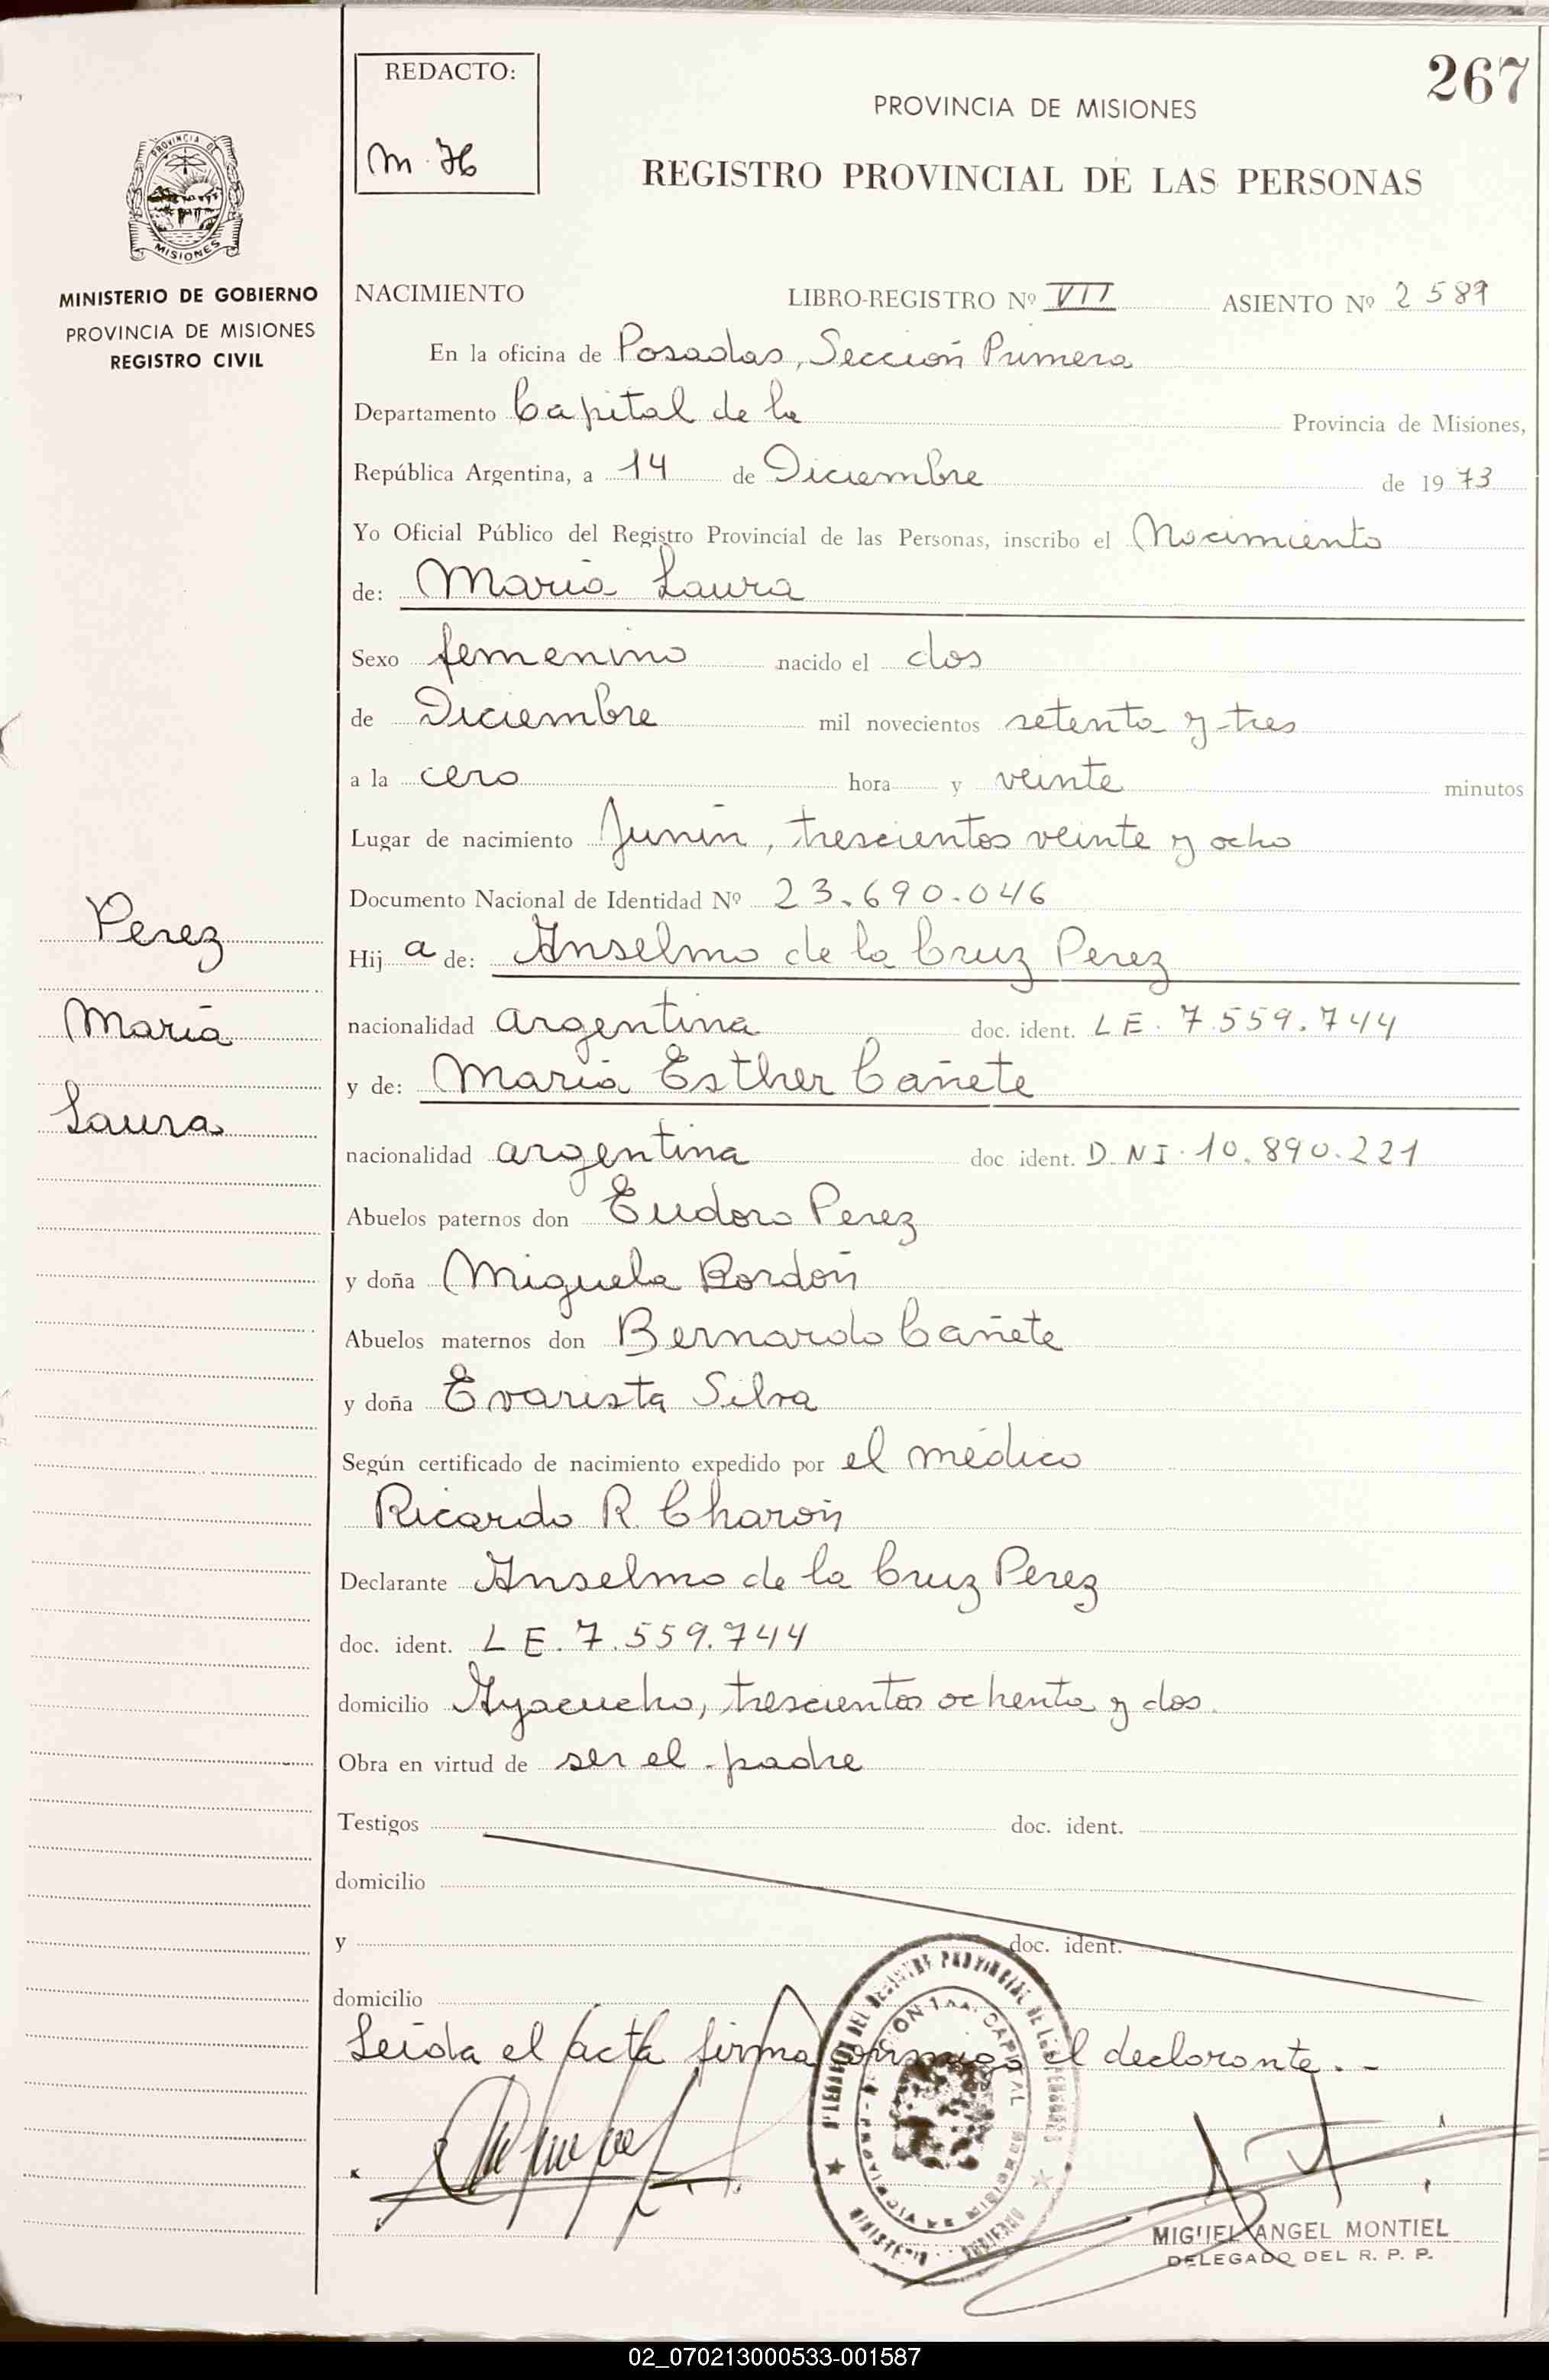 267
REDACTO:
m. H
PROVINCIA DE MISIONES
REGISTRO PROVINCIAL DE LAS PERSONAS
PROVINCIA DE
MISIONES
MINISTERIO DE GOBIERNO
PROVINCIA DE MISIONES
REGISTRO CIVIL
NACIMIENTO LIBRO-REGISTRO Nº VII ASIENTO Nº 2589
En la oficina de Posadas, Sección Primera
Departamento Capital de la Provincia de Misiones,
República Argentina, a 14 de Diciembre de 1973
Yo Oficial Público del Registro Provincial de las Personas, inscribo el Nacimiento
de: María Laura
Sexo femenino nacido el dos
de Diciembre mil novecientos setenta y tres
a la cero hora y veinte minutos
Lugar de nacimiento Junín, trescientos veinte y ocho
Documento Nacional de Identidad Nº 23.690.046
Perez
María
Laura
Hij a de: Anselmo de la Cruz Perez
nacionalidad argentina doc. ident. L E. 7.559.744
y de: María Esther Cañete
nacionalidad argentina doc ident. D.N I. 10.890.221
Abuelos paternos don Eudoro Perez
y doña Miguela Bordón
Abuelos maternos don Bernardo Cañete
y doña Evarista Silva
Según certificado de nacimiento expedido por el médico
Ricardo R. Charón
Declarante Anselmo de la Cruz Perez
doc. ident. L E. 7.559.744
domicilio Ayacucho, trescientos ochenta y dos.
Obra en virtud de ser el padre
Testigos doc. ident.
domicilio
y doc. ident.
domicilio
Leída el acta firma conmigo el declarante. -
MIGUEL ANGEL MONTIEL
DELEGADO DEL R. P. P.
02_070213000533-001587